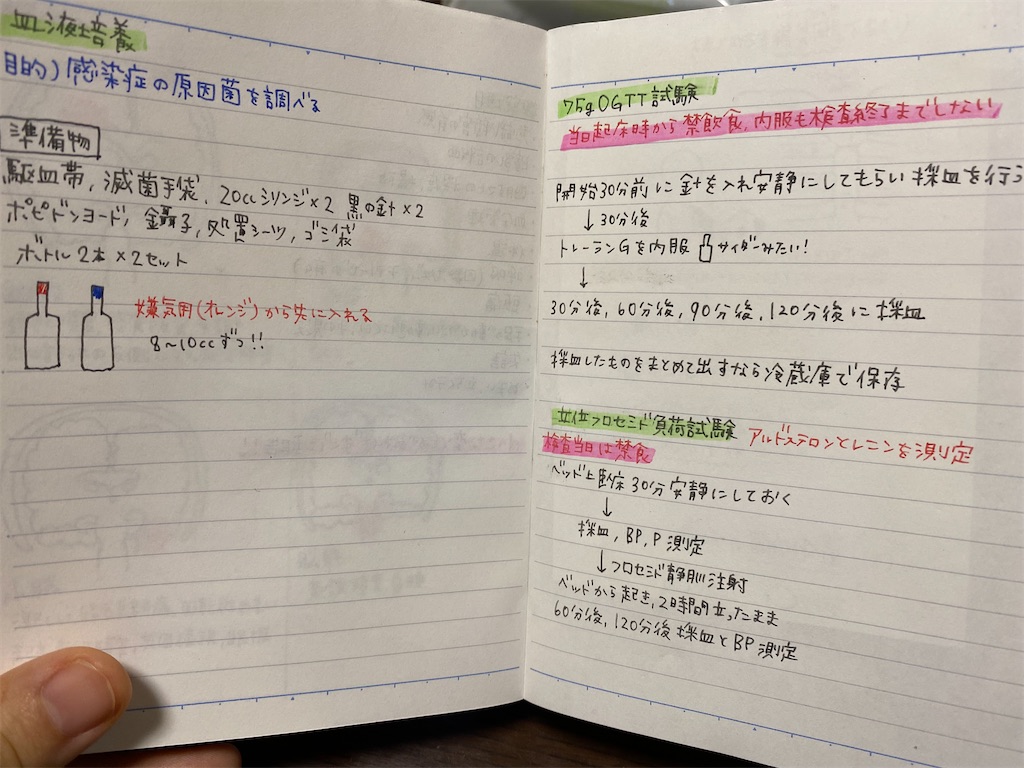 血液培養
目的)感染症の原因菌を調べる
準備物
駆血帯、滅菌手袋、20ccシリンジ×2 黒の針×2
ポピドンヨード、鑷子、処置シーツ、ゴミ袋
ボトル2本×2セット
嫌気用(オレンジ)から先に入れる
8~10ccずつ!!
75gOGTT試験
当日起床時から禁飲食、内服も検査終了までしない
開始30分前に針を入れ安静にしてもらい採血を行う
↓30分後
トレーランGを内服 サイダーみたい!
↓
30分後、60分後、90分後、120分後に採血
採血したものをまとめて出すなら冷蔵庫で保存
立位フロセミド負荷試験 アルドステロンとレニンを測定
検査当日は禁食
ベッド上臥床30分安静にしておく
↓
採血、BP、P測定
↓フロセミド静脈注射
ベッドから起き、2時間立ったまま
60分後、120分後採血とBP測定